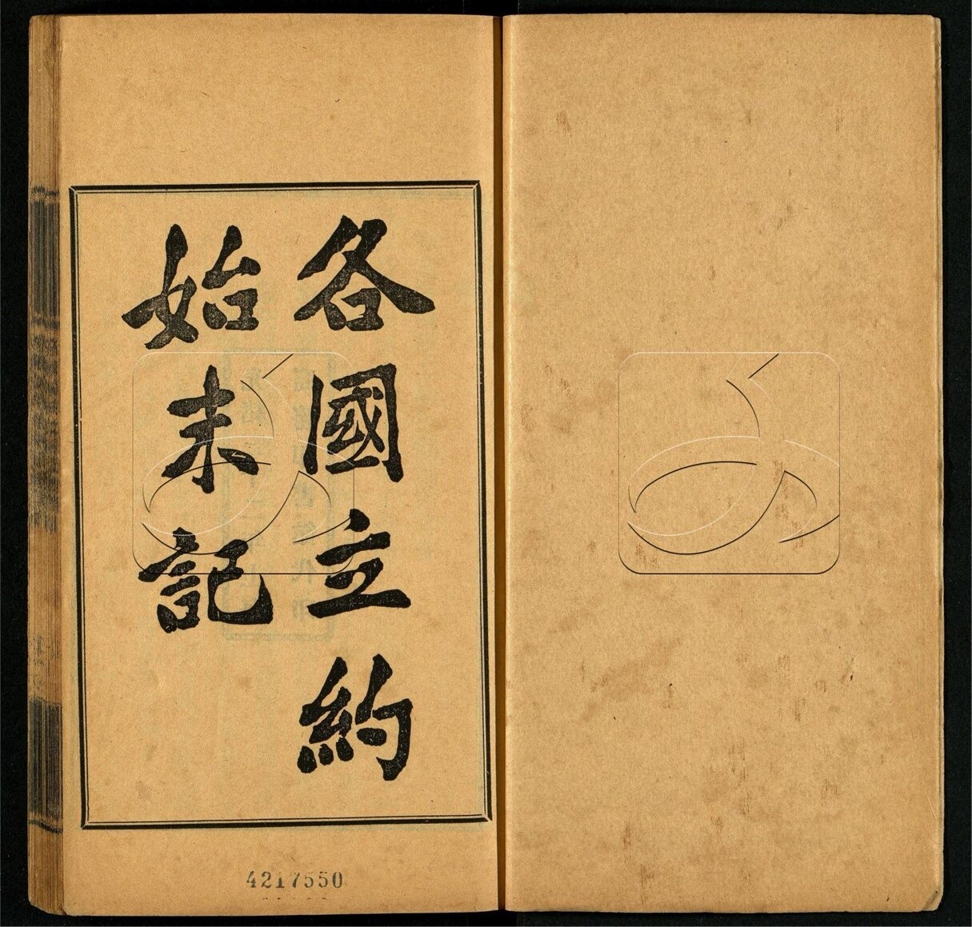 各國立約
始末記
4217550